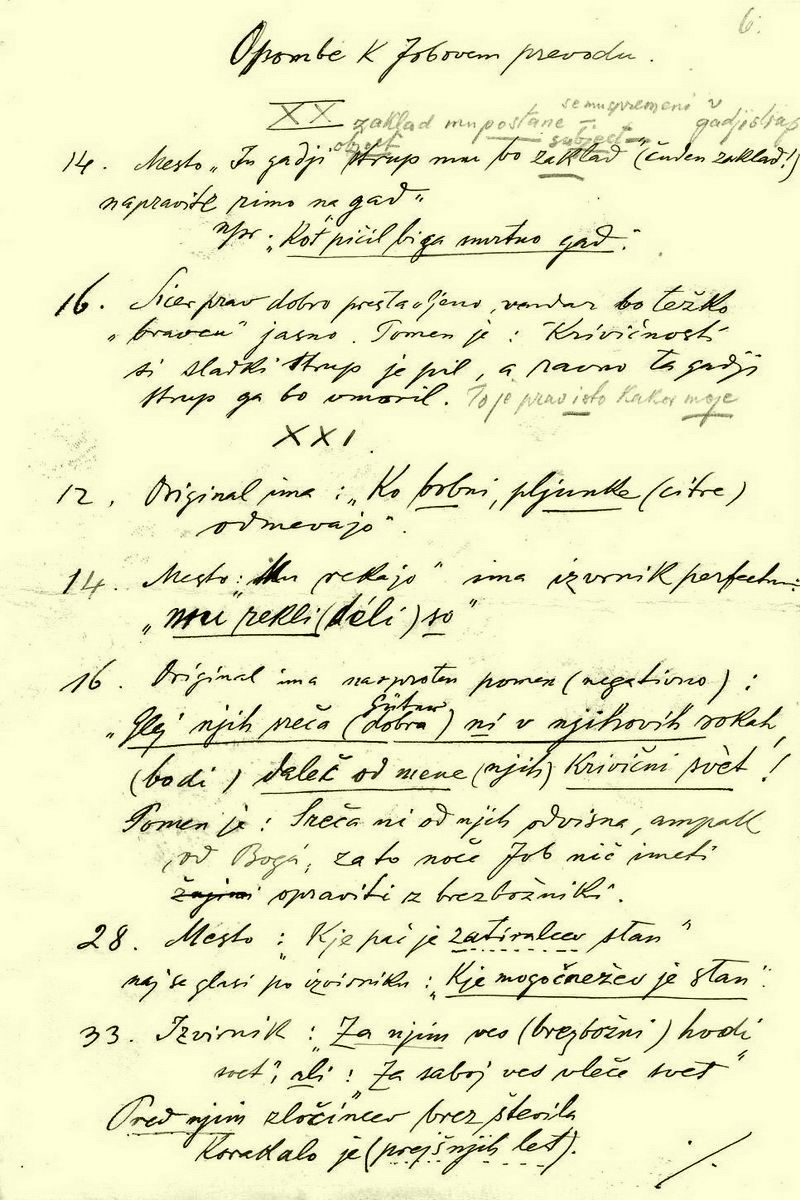 6.
Opombe k Jobovem prevodu.
se mu spremeni v
XX zaklad mu postane – gadji strup
objekt subjekt
14. Mesto „In gadji strup mu bo zaklad“ (čuden zaklad!)
napravite rimo na gad“
npr. „Kot pičil bi ga smrtno gad“.
16. Sicer prav dobro prestavljeno, vendar bo težko
„bravcu“ jasno. Pomen je: Krivičnosti
si sladki strup je pil, a ravno ta gadji
strup ga bo umoril. To je prav isto kakor moje
XXI.
12. Original ima: „Ko bobni, pljunke (citre)
odmevajo“.
14. Mesto: „Mu rekajo“ ima izvirnik perfectum:
„mu rekli (déli) so“
16. Original ima nasproten pomen (negativno):
„Glej njih sreča (dobra) ni v njihovih rokah,
(bodi) daleč od mene (njih) krivični svèt!
Pomen je: Sreča ni od njih odvisna, ampak
„od Boga“, zato noče Job nič imeti
opraviti z brezbožniki“.
28. Mesto: „Kje pač je zatiralcev stan“
naj se glasi po izvirniku: „Kje mogočnežev je stan“.
33. Izvirnik: „Za njim ves (brezbožni) hodi
svet“; ali: „Za saboj ves vleče svet“
Pred njim zločincev brez števila
Korakalo je (prejšnjih let).